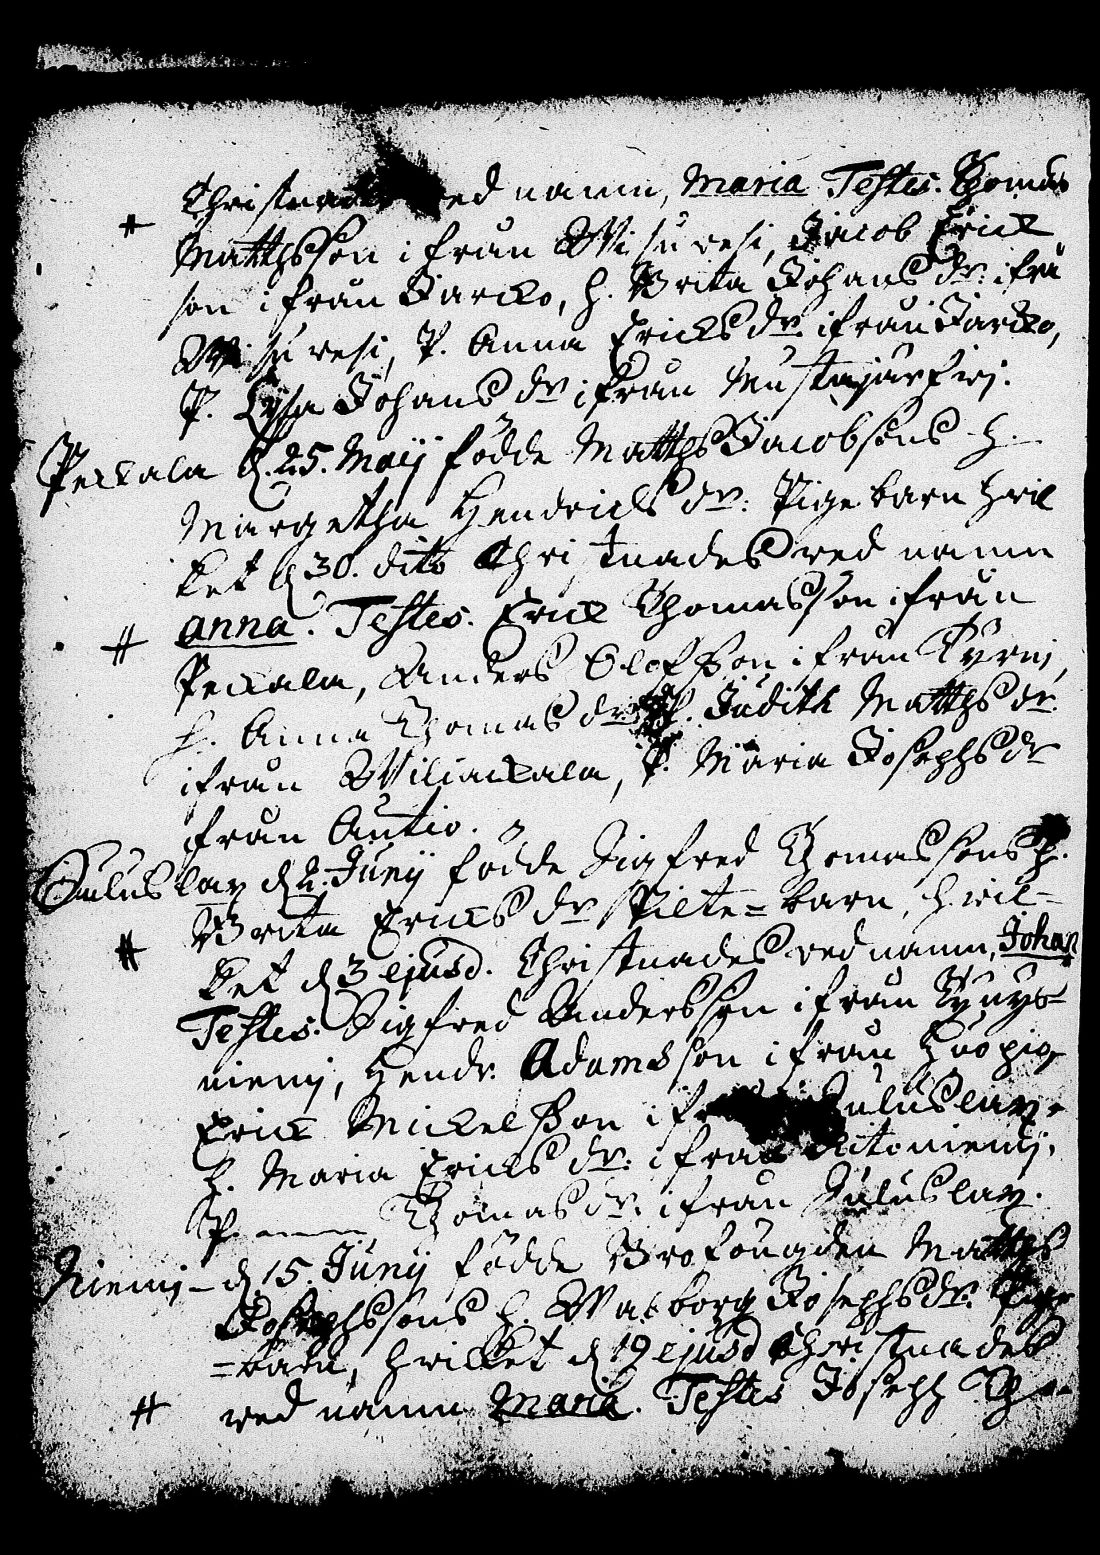 Christnades wed namn, Maria Testes. Thomas
Matthsson ifrån Wisuvesi, Jacob Erick
son ifrån Jarcko, h. Brita Johans dr. ifrå
Wisuvesi, P. Anna Ericks dr. ifrån Jarcko,
P. Lysa Johans dr ifrån Mustajärfwj.
Peckala d. 25. Maij födde Matths Jacobsons h.
Margetha Hendricks dr. Pigebarn hwil
ket d 30. dito Christnades wed namn
anna. Testes. Erick Thomasson ifrån
Peckala, Anders Olofsson ifrån Kyrej,
h. Anna Thomas dr. Judith Matths dr.
ifrån Wiliackala, P. Maria Josephs dr
ifrån Antio.
d 2. Junij födde Sigfred Thomassons h.
Brita Ericks dr Pilte=barn, hwil=
ket d 3 ejusd. Christnades wed namn, Johan
Testes. Sigfred Andersson ifrån
niemj, Hendr. Adamsson ifrån
Erick Mickelsson ifrån
h. Maria Ericks dr. ifrån
P. Thomas dr. ifrån Suluslax.
Niemj - d 15. Junij födde Brofougden Matths
Josephssons h. Walborg Josephs dr. Pige
=barn, hwilket d 19 ejusd Christnades
wed namn Maria. Testes Joseph Tho-